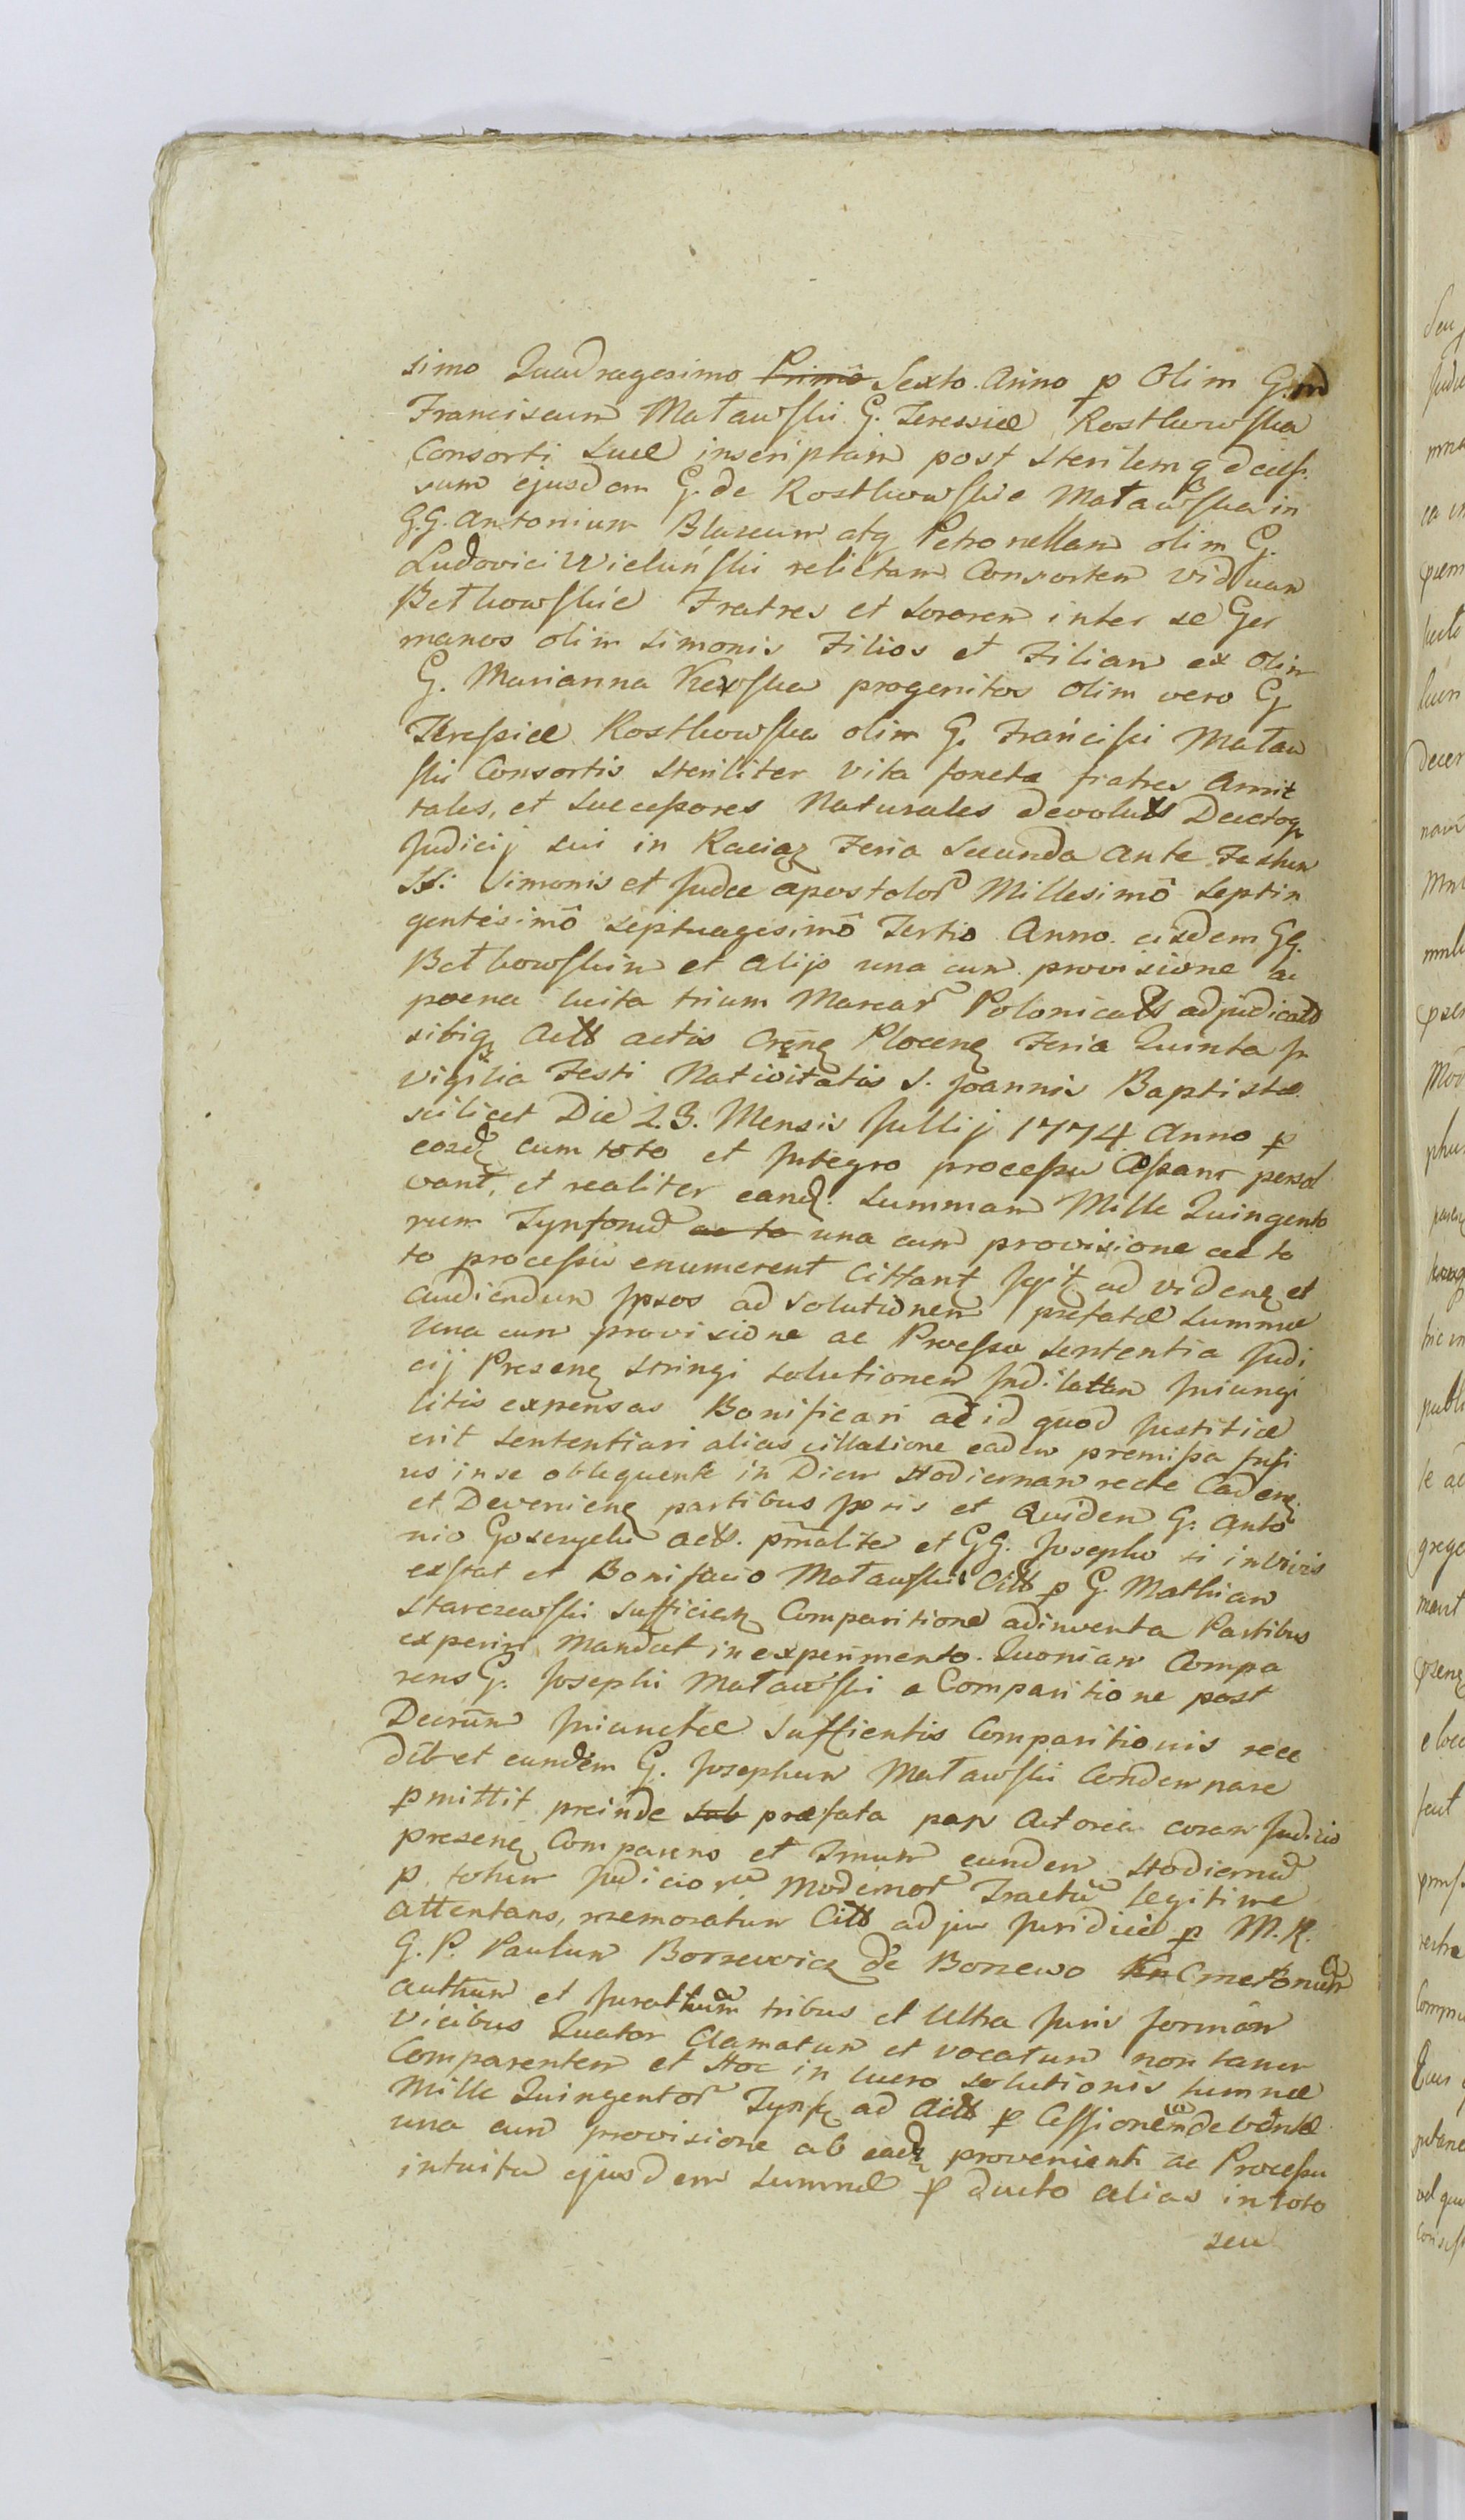 simo Quadragesimo Primo Sexto Anno p Olim G.
Franciscum Matawski G. Teressiæ Rostkowska
Consorti suæ inscriptam post sterilem decess
sum ejusdem G. de Rostkowskie Matawska in
G.G. Antonium Blaseum atq Petronellam olim G.
Ludovici Wieluński relictam Consortem viduam
Betkowskie Fratres et sororem inter se Ger
manos olim Simonis Filios et Filiam ex olim
G. Marianna progenitos olim vero G
Teressiæ Rostkowska olim G. Francisci Mataw
ski Consortis steriliter vita foncta fratres Amit
tales, et successores Naturales devolutæ
Judicij sui in Raciąz Feria Secunda Ante Festum
SS. Simonis et Judæ apostolor Millesimô septin
gentesimô septuagesimô Tertio Anno eisdem GG.
Betkowskim et alijs una cum provisione ac
poena luita trium Marcar Polonical adjudicat
sibiq Act actis Plocenę Feria Quinta In
vigilia Festi Nativitatis S. Joannis Baptistæ
scilicet Die 23. Mensis Jullij 1774 Anno p
eosdę cum toto et Integro processu persol
vant, et realiter eandę Summam Mille Quingento
rum Tynfonũ ac to una cum provisione ac to
to processu enumerent Cittant ad videnę et
audiendum Ipsos ad solutionem prefatæ summæ
una cum provisione ac Processu sententia Judi
cij Presenę stringi solutionem Iniungi
litis expensas Bonificari ac id quod Justitiæ
erit sententiari alias cittatione eadem premissa
us in se obloquente in Diem Hodiernam recte Cadenę
et Devenienę partibus Ipsis et Quidem G. Anto
nio Act. et GG. Josepho si in vivis
exstat et Bonifacio Matawski Citt p G. Mathiam
Starczewski sufficienę Comparitione adinventa Partibus
experiri Mandat in experimento. Quoniam Compa
rens G. Josephi Matawski a Comparitione post
Decretũ Iniunctæ Sufficientis Comparitionis rece
dit et eundem G. Josephum Matawski Condemnare
pmittit preinde sub præfata pars Actorea coram Judicio
presenę Comparens et Tmum eundem Hodiernũ
p totum Judiciorũ Modernor Tractũ legitime
attentans, memoratum Citt ad jus Juridicæ p M. R.
G. P. Paulum Borzewicz de Borzewo
authum et Juratum tribus et Ultra Juris formân
vicibus Quator Clamatum et vocatum non tamen
Comparentem et Hoc in lucro solutionis summæ
Mille Quingentor Tynf ad Act p Cessionem
una cum provisione ab eadę provenienti ac Processu
intuitu ejusdem summæ p ducto alias in toto
seu